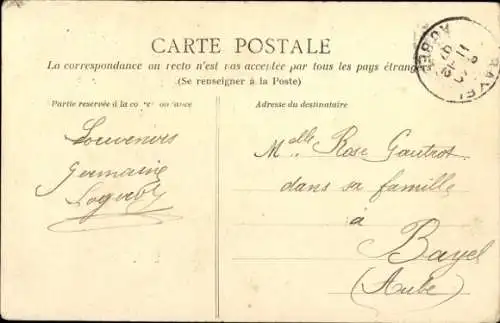 CARTE POSTALE
La correspondance au recto n'est pas acceptée par tous les pays étrang
(Se renseigner à la Poste)
Partie réservée à la co
Adresse du destinataire
Souvenirs
Germaine
Melle Rose Gautrot
dans sa famille
à
Bayel
(Aube)
BAYEL
AUBE